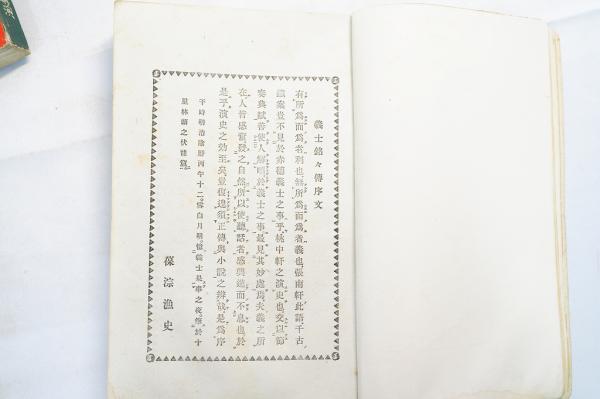 義士銘々傳序文
有所爲而爲者利也無所爲而爲者義也張南軒此語千古
鐵案豈不見於赤穗義士之事乎桃中軒之演史也交以節
奏典賦善使人解頤於義士之事最見其妙處焉夫義之所
在人皆感奮發之自然所以使聽話者感興進而不息也於
是乎演史之効至矣豈復遑須正傳與小說之辨哉是爲序
于時明治陰曆丙午十二雪白月明憶義士是事之夜於十
里林頭之伏龍窟
葆淙漁史